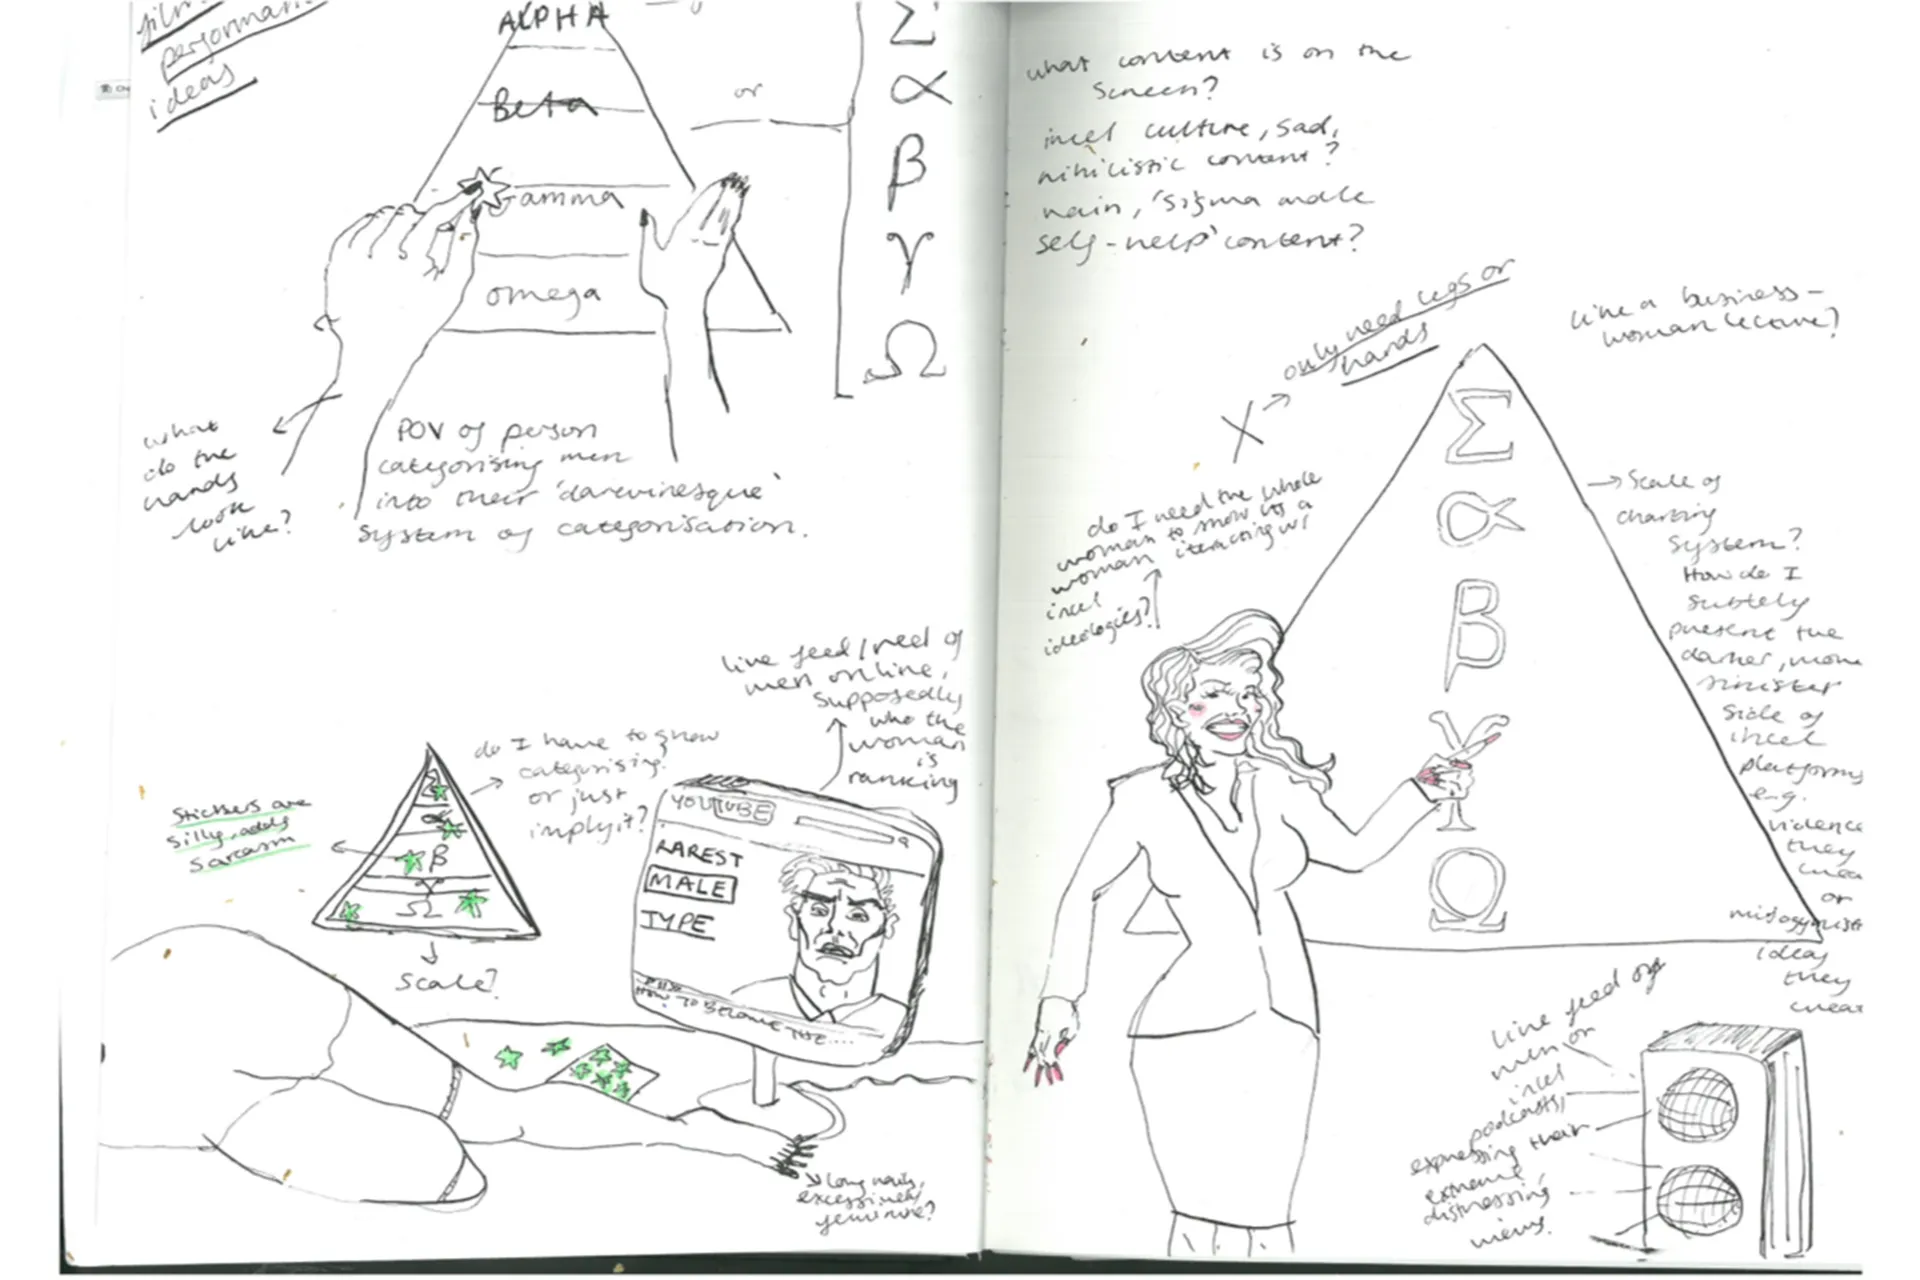 film
performan
ideas
ALPHA
Beta
Gamma
omega
or
Σ
α
β
γ
Ω
what
do the
hands
look
like?
POV of person
categorising men
into their 'darwinesque'
system of categorisation.
live feed/reel of
men online,
supposedly
who the
woman
is
ranking
do I have to show
categorising
or just
imply it?
Stickers are
silly, adds
sarcasm
Σ
α
β
γ
Ω
scale?
YOUTUBE
RAREST
MALE
TYPE
HOW TO BECOME THE....
long nails,
excessively
feminine?
what content is on the
screen?
incel culture, sad,
nihilistic content?
main, 'sigma male
self-help' content?
only need legs or
hands
like a business-
woman lecture?
X
do I need the whole
woman to show its a
woman iteracting w/
incel
ideologies?
Σ
α
β
γ
Ω
Scale of
charting
system?
How do I
subtely
present the
darker, more
sinister
side of
incel
platforms
e.g.
violence
they
or
misogynist
ideas
they
live feed of
men or
incel
podcasts,
expressing their
extreme
distressing
views.